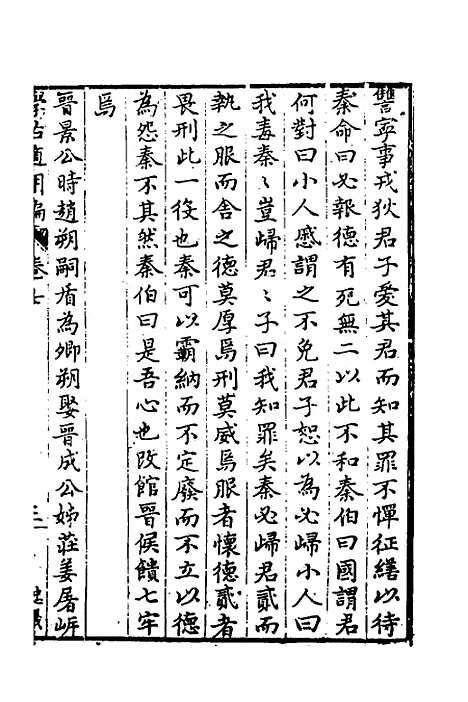 讐寧事戎狄君子愛其君而知其罪不憚征繕以待
秦命曰必報德有死無二以此不和秦伯曰國謂君
何對曰小人慼謂之不免君子恕以為必歸小人曰
我毒秦〻豈歸君〻子曰我知罪矣秦必歸君貳而
執之服而舍之德莫厚焉刑莫威焉服者懷德貳者
畏刑此一役也秦可以霸納而不定廢而不立以德
為怨秦不其然秦伯曰是吾心也改館晉侯饋七牢
焉
晉景公時趙朔嗣盾為卿朔娶晉成公姊莊姜屠岍
學古適用編 卷七